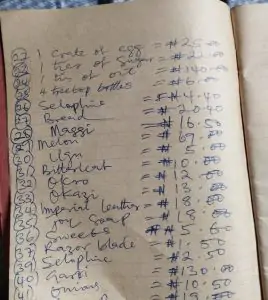 22 1 crate of egg = #25.00
tier of sugar = #22.00
1 tin of oil = #140.00
4 feetop bottles = #6.00
26 Selophine = #4.40
27 Bread = #20.40
28 Maggi = #16.50
29 Melon = #69.00
30 Ugu = # 5.00
31 Bitterleaf = #10.00
32 Okro = #12.00
33 Okazi = #13.00
34 Imperial leather = # 18.00
35 Joy Soap = #18.00
36 Sweets = # 5.60
37 Razor blade = # 1.50
39 Selophine = # 2.50
40 Garri = #130.00
Onions = #10.50